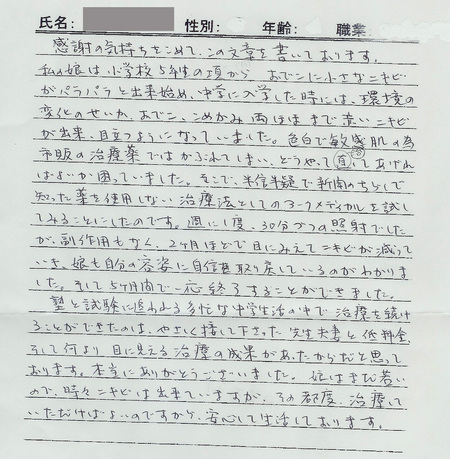 氏名: 性別: 年齢: 職業
感謝の気持ちをこめて、この文章を書いております。
私の娘は小学校5年生の頃から、おでこに小さなニキビ
がパラパラと出来始め、中学に入学した時には、環境の
変化のせいか、おでこ、こめかみ、両ほほまで赤いニキビ
が出来、目立つようになっていました。色白で敏感肌の為
市販の治療薬ではかぶれてしまい、どうやって治してあげれ
ばよいか困っていました。そこで、半信半疑で新聞のちらしで
知った薬を使用しない治療法としてのアークメディカルを試し
てみることにしたのです。週に1度、30分づつの照射でした
が、副作用もなく、2ヶ月ほどで目にみえてニキビが減って
いき、娘も自分の容姿に自信を取り戻しているのがわかりま
した。そして5ヶ月間で一応終了することができました。
塾と試験に追われる多忙な中学生活の中で治療を続け
ることができたのは、やさしく接して下さった先生夫妻と低料金、
そして何より目に見える治療の成果があったからだと思って
おります。本当にありがとうございました。娘はまだ若い
ので、時々ニキビは出来ていますが、その都度、治療して
いただけばよいのですから、安心して生活しております。